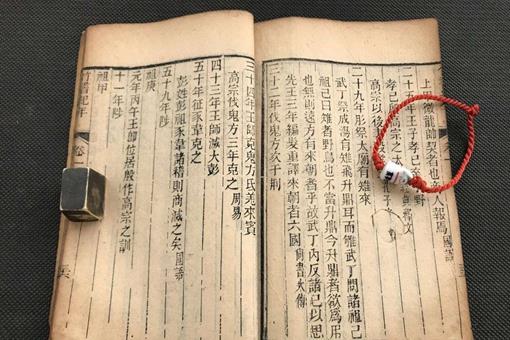 上甲微能帥契者也 人報焉 國語
二十五年王子孝己 野
孝己 高宗之
高宗以後
二十九年肜祭太廟有雉來
武丁祭成湯有雉飛升鼎耳而雊武丁問諸祖己
祖己曰雉者野鳥也不當升鼎今升鼎者欲爲用
也無則遠方有來朝者乎故武丁內反諸己以思
先王三年編髮重譯來朝者六國 尚書大傳
三十二年伐鬼方次于荊
三十四年王師克鬼方氐羌來賓
高宗伐鬼方三年克之 周易
四十三年王師滅大彭
五十年征豕韋克之
彭姓彭祖豕韋諸稽則商滅之矣 國語
五十九年陟
祖庚
元年丙午王卽位居殷作高宗之訓
十一年陟
祖甲
竹書紀年 卷